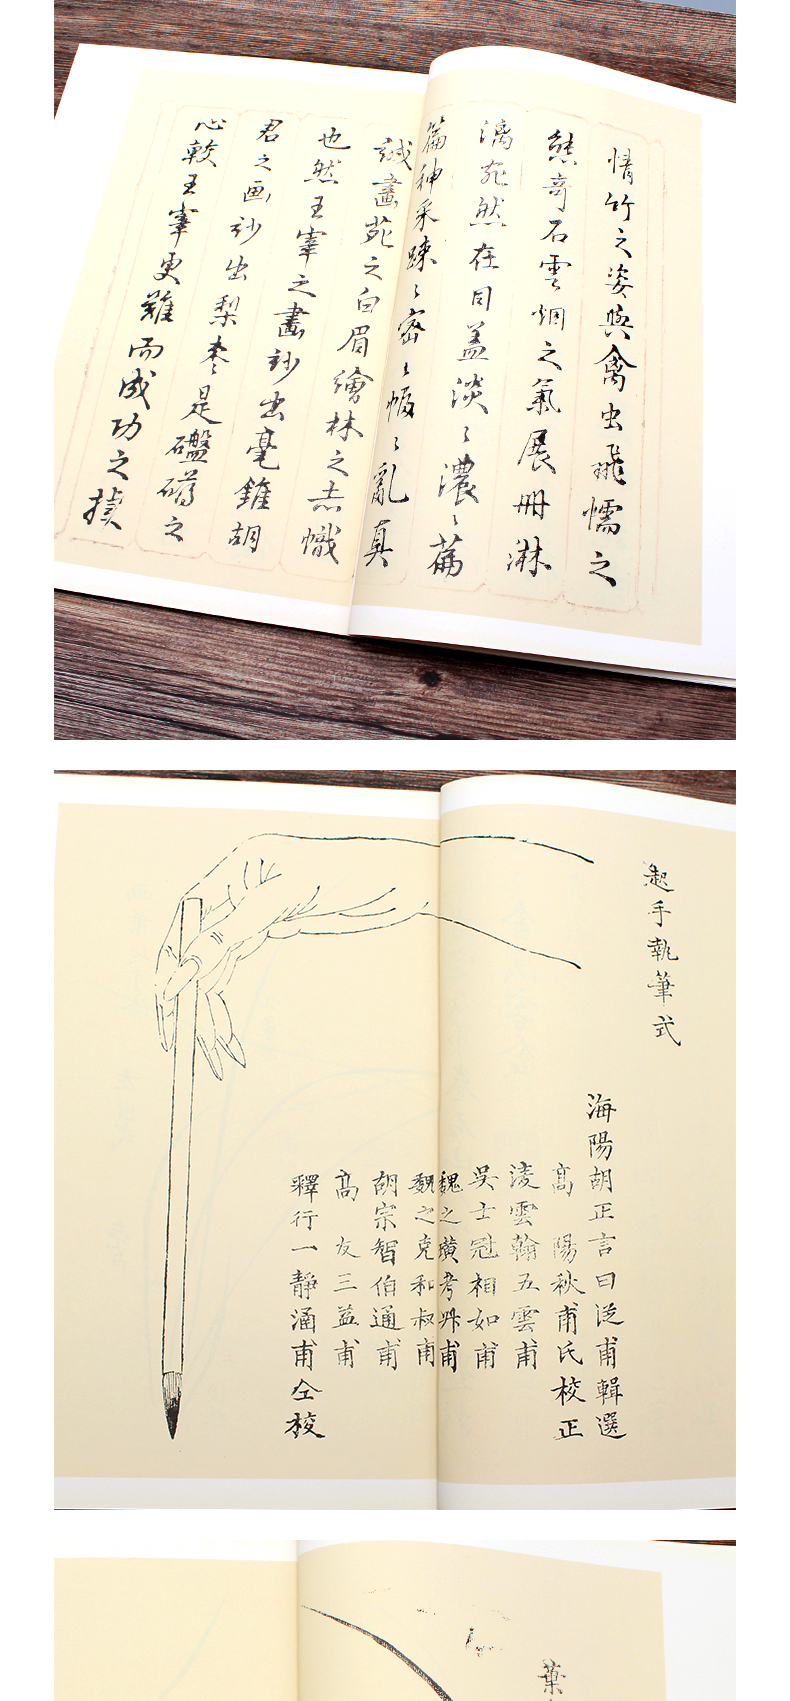 情竹之姿與禽虫飛懦之
態奇石雲烟之氣展冊淋
漓宛然在目盖淡〻濃〻篇
篇神采踈〻密〻幅〻亂真
誠畫苑之白眉繪林之赤幟
也然王宰之畫玅出毫錐胡
君之画玅出梨枣是礲磷之
心較王宰更難而成功之
起手執筆式
海陽胡正言曰從甫輯選
高陽秋甫氏校正
凌雲翰五雲甫
吳士冠相如甫
魏之璜考叔甫
魏之克和叔甫
胡宗智伯通甫
高友三益甫
釋行一靜涵甫仝校
葉